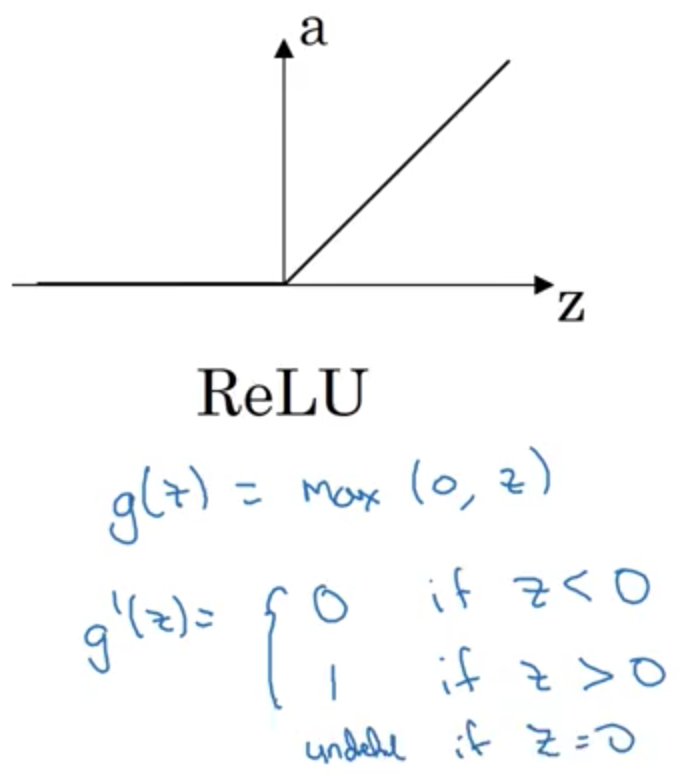 a
z
ReLU
g(z) = max (0, z)
g'(z) = { 0 if z < 0
1 if z > 0
if z = 0